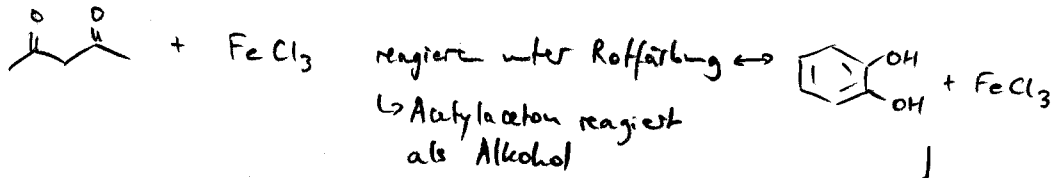 O O
+ FeCl3 reagieren unter Rotfärbung ↔ OH OH + FeCl3
↳ Acetylaceton reagiert
als Alkohol